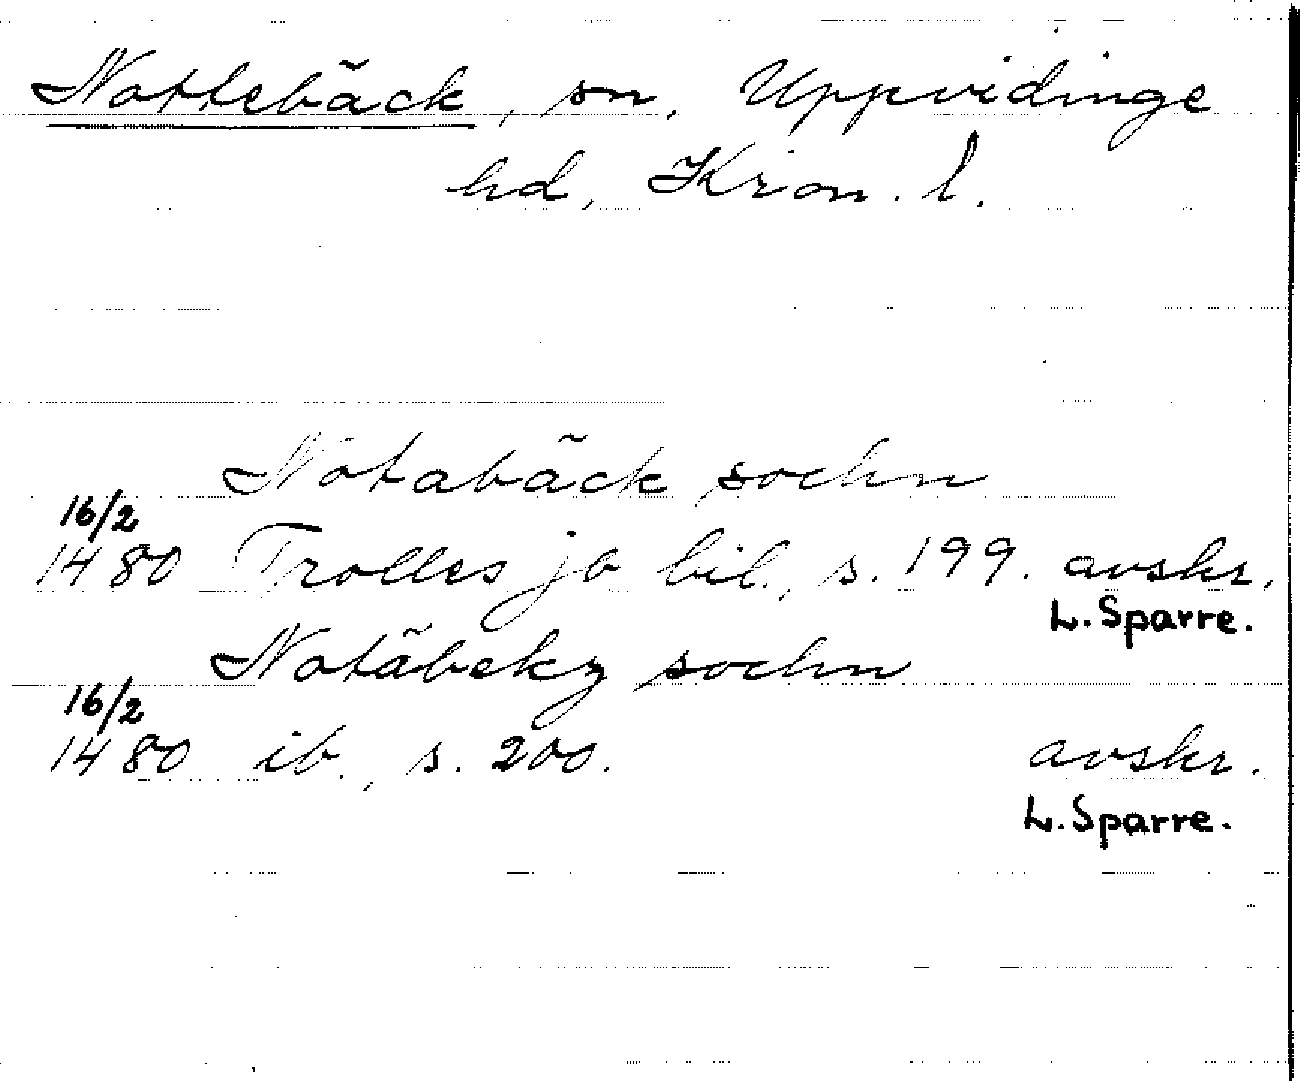 Nottebäck, sn, Uppvidinge
hd, Kron. l.
Notabäck sochn
16/2
1480 Trolles jb bil., s. 199. avskr.
L. Sparre.
Notäbeky sochn
16/2
1480 ib., s. 200. avskr.
L. Sparre.